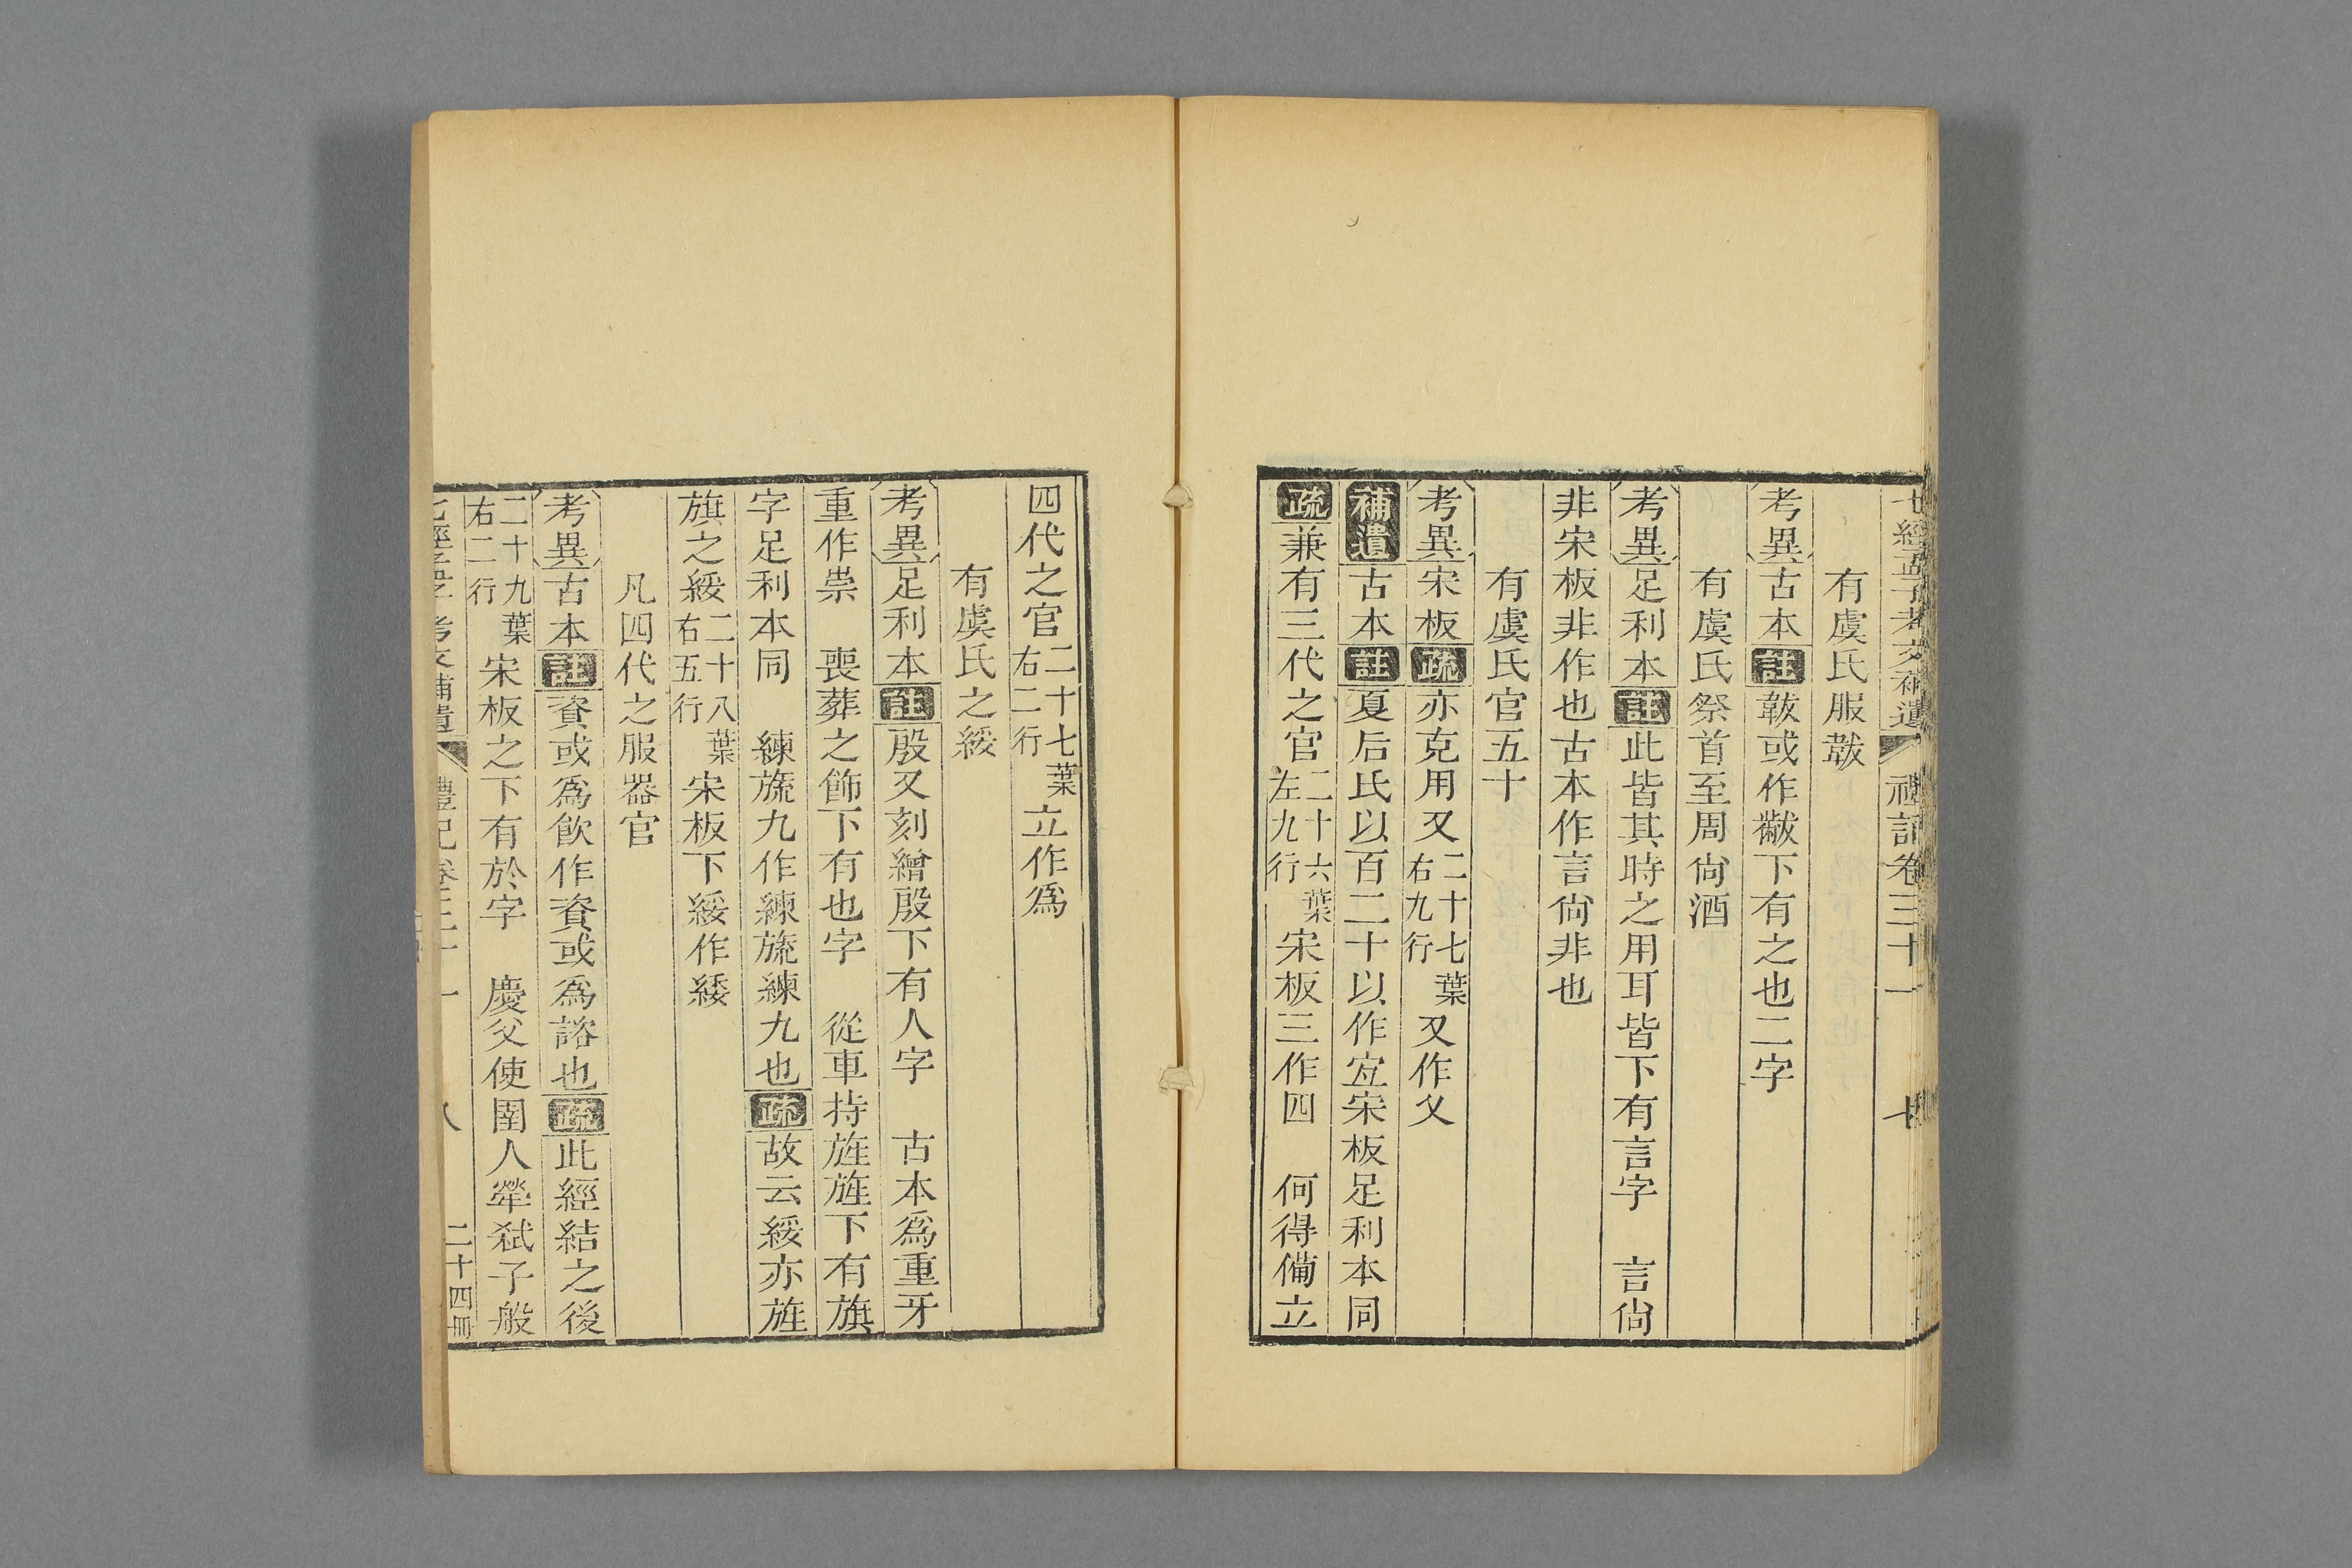 七經孟子考文補遺 禮記卷三十一 七
有虞氏服韍
考異古本註韍或作黻下有之也二字
有虞氏祭首至周尙酒
考異足利本註此皆其時之用耳皆下有言字 言尙
非宋板非作也古本作言尙非也
有虞氏官五十
考異宋板疏亦克用又二十七葉右九行又作乂
補遺古本註夏后氏以百二十以作宐宋板足利本同
疏兼有三代之官二十六葉左九行宋板三作四 何得備立
四代之官二十七葉右二行立作爲
有虞氏之綏
考異足利本註殷又刻繒殷下有人字 古本爲重牙
重作崇 喪葬之飾下有也字 從車持旌旌下有旗
字足利本同 練旒九作練旒練九也疏故云綏亦旌
旗之綏二十八葉右五行宋板下綏作緌
凡四代之服器官
考異古本註資或爲飮作資或爲諮也疏此經結之後
二十九葉右二行宋板之下有於字 慶父使圉人犖弑子般
七經孟子考文補遺 禮記卷三十一 八 二十四冊